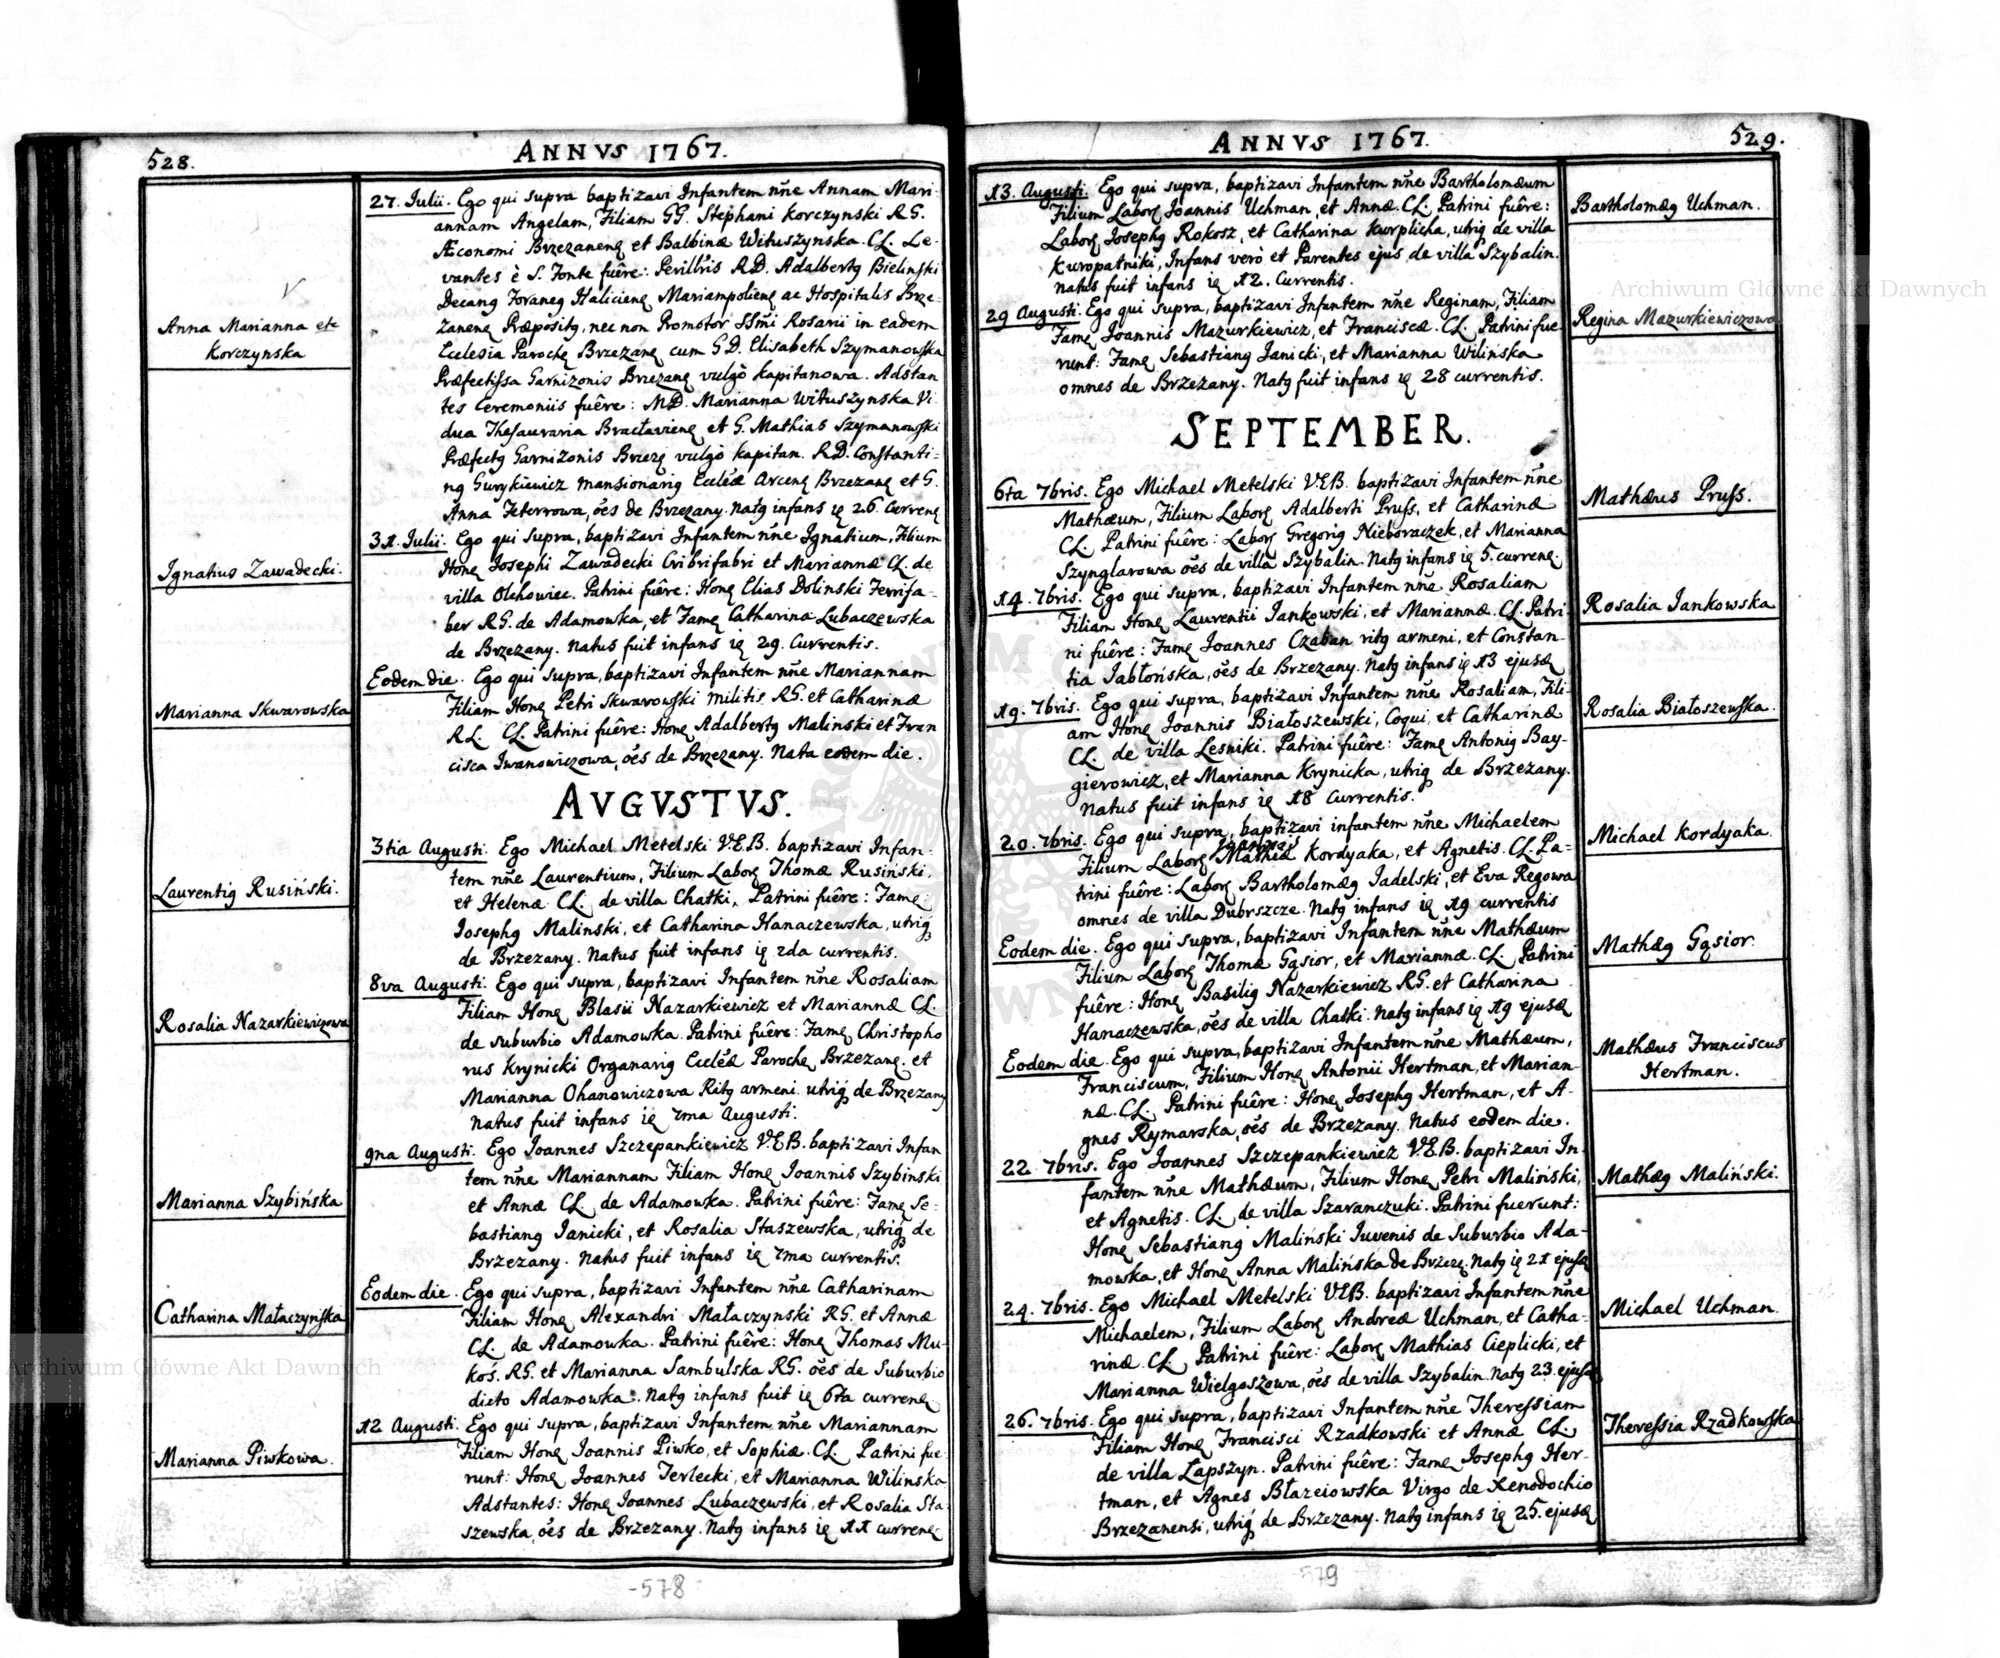 528.
ANNVS 1767.
Anna Marianna etc
Korczynska
27. Iulii. Ego qui supra baptizavi Infantem nn̄e Annam Mari-
annam Angelam, Filiam GG. Stephani Korczynski RG.
Æconomi Brzezanenę et Balbinæ Wituszynska. CL. Le-
vantes è S. Fonte fuêre: Perillris RD. Adalbertę Bielinski
Decanę Foraneę Halicienę Mariampolienę ac Hospitalis Brze-
zanenę Præpositę, nec non Promotor SSm̄i Rosarii in eadem
Ecclesia Parochę Brzezanę cum GD. Elisabeth Szymanowska
Præfectissa Garnizonis Brzezanę vulgò Kapitanowa. Adstan
tes Ceremoniis fuêre: MD. Marianna Wituszynska Vi
dua Thesauraria Bracłavienę et G. Mathias Szymanowski
Præfectę Garnizonis Brzezę vulgò Kapitan. RD. Constanti=
nę Gurykiewicz Mansionarię Eccleæ Arcenę Brzezanę et G.
Anna Feterrowa, oēs de Brzezany. Natę infans ię 26. Currenę
Ignatius Zawadecki.
31. Iulii. Ego qui supra, baptizavi Infantem nn̄e Ignatium, Filium
Honę Iosephi Zawadecki Cribrifabri et Mariannæ CL. de
villa Olchowiec. Patrini fuêre: Honę Elias Dolinski Ferrifa-
ber RG. de Adamowka, et Famę Catharina Lubaczewska
de Brzezany. Natus fuit infans ię 29. Currentis.
Marianna Skwarowska
Eodem die. Ego qui supra, baptizavi Infantem nn̄e Mariannam
Filiam Honę Petri Skwarowski militis RG. et Catharinæ
RL. CL. Patrini fuêre: Honę Adalbertę Malinski et Fran
cisca Iwanowiczowa, oēs de Brzezany. Nata eodem die.
AVGVSTVS.
Laurentię Rusiński.
3tia Augusti. Ego Michael Metelski V.E.B. baptizavi Infan-
tem nn̄e Laurentium, Filium Laborę Thomæ Rusiński,
et Helenæ CL. de villa Chatki, Patrini fuêre: Famę
Iosephę Malinski, et Catharina Hanaczewska, utrię
de Brzezany. Natus fuit infans ię 2da currentis.
Rosalia Nazarkiewiczowa
8va Augusti. Ego qui supra, baptizavi Infantem nn̄e Rosaliam
Filiam Honę Blasii Nazarkiewicz et Mariannæ CL.
de suburbio Adamowka. Patrini fuêre: Famę Christopho
rus Krynicki Organarię Eccleæ Parochę Brzezanę. et
Marianna Ohanowiczowa Ritę armeni. utrię de Brzezany
Natus fuit infans ię 7ma Augusti.
Marianna Szybińska
9na Augusti. Ego Ioannes Szczepankiewicz V.E.B. baptizavi Infan
tem nn̄e Mariannam Filiam Honę Ioannis Szybinski
et Annæ CL. de Adamowka. Patrini fuêre: Famę Se-
bastianę Ianicki, et Rosalia Staszewska, utrię de
Brzezany. Natus fuit infans ię 7ma currentis.
Catharina Małaczynska
Eodem die. Ego qui supra, baptizavi Infantem nn̄e Catharinam
Filiam Honę Alexandri Małaczynski RG. et Annæ
CL. de Adamowka. Patrini fuêre: Honę Thomas Mu-
koś. RG. et Marianna Sambulska RG. oēs de Suburbio
dicto Adamowka. Natę infans fuit ię 6ta currenę
Marianna Piwkowa.
12 Augusti. Ego qui supra, baptizavi Infantem nn̄e Mariannam
Filiam Honę Ioannis Piwko, et Sophiæ. CL. Patrini fue-
runt: Honę Ioannes Terlecki, et Marianna Wilinska
Adstantes: Honę Ioannes Lubaczewski, et Rosalia Sta
szewska, oēs de Brzezany. Natę infans ię 11 currenę
-578
ANNVS 1767.
529.
13. Augusti. Ego qui supra, baptizavi Infantem nn̄e Bartholomæum
Filium Laborę Ioannis Uchman, et Annæ. CL. Patrini fuêre:
Laborę Iosephę Rokosz, et Catharina Kurplicha, utrię de villa
Kuropatniki, Infans verò et Parentes ejus de villa Szybalin.
natus fuit infans ię 12. Currentis.
Bartholomæę Uchman.
29 Augusti. Ego qui supra, baptizavi Infantem nn̄e Reginam, Filiam
Famę Ioannis Mazurkiewicz, et Franciscæ. CL. Patrini fue
runt: Famę Sebastianę Ianicki, et Marianna Wilińska
omnes de Brzezany. Natę fuit infans ię 28 currentis.
Regina Mazurkiewiczowa
SEPTEMBER.
6ta 7bris. Ego Michael Metelski V.E.B. baptizavi Infantem nn̄e
Mathæum, Filium Laborę Adalberti Pruss, et Catharinæ
CL. Patrini fuêre: Laborę Gregorię Nieboraczek, et Marianna
Szynglarowa oēs de villa Szybalin. Natę infans ię 5. currenę.
Mathæus Pruss.
14. 7bris. Ego qui supra, baptizavi Infantem nn̄e. Rosaliam
Filiam Honę Laurentii Iankowski, et Mariannæ. CL. Patri-
ni fuêre: Famę Ioannes Czaban ritę armeni, et Constan-
tia Iabłońska, oēs de Brzezany. Natę infans ię 13 ejusę
Rosalia Iankowska
19. 7bris. Ego qui supra, baptizavi Infantem nn̄e Rosaliam, Fili-
am Honę Ioannis Białoszewski, Coqui, et Catharinæ
CL. de villa Lesniki. Patrini fuêre: Famę Antonię Bay-
gierowicz, et Marianna Krynicka, utrię de Brzezany.
Natus fuit infans ię 18 Currentis.
Rosalia Białoszewska.
20. 7bris. Ego qui supra, baptizavi infantem nn̄e Michaelem
Filium Laborę Mathiæ Kordyaka, et Agnetis. CL. Pa-
trini fuêre: Laborę Bartholomæę Iadelski, et Eva Regowa
omnes de villa Dubrszcze. Natę infans ię 19 currentis
Michael Kordyaka.
Eodem die. Ego qui supra, baptizavi Infantem nn̄e Mathæum
Filium Laborę Thomæ Gąsior, et Mariannæ. CL. Patrini
fuêre: Honę Basilię Nazarkiewicz RG. et Catharina
Hanaczewska, oēs de villa Chatki. Natę infans ię 19 ejusę
Mathæę Gąsior.
Eodem die. Ego qui supra, baptizavi Infantem nn̄e Mathæum,
Franciscum, Filium Honę Antonii Hertman, et Marian-
næ. CL. Patrini fuêre: Honę Iosephę Hertman, et A-
gnes Rymarska, oēs de Brzezany. Natus eodem die.
Mathæus Franciscus
Hertman.
22. 7bris. Ego Ioannes Szczepankiewicz V.E.B. baptizavi In-
fantem nn̄e Mathæum, Filium Honę Petri Maliński,
et Agnetis. CL. de villa Szaranczuki. Patrini fuerunt:
Honę Sebastianę Maliński Iuvenis de Suburbio Ada-
mowska, et Honę Anna Malińska de Brzezę. Natę ię 21 ejusę
Mathæę Maliński.
24. 7bris. Ego Michael Metelski V.E.B. baptizavi Infantem nn̄e
Michaelem, Filium Laborę Andreæ Uchman, et Catha-
rinæ. CL. Patrini fuêre: Laborę Mathias Cieplicki, et
Marianna Wielgoszowa, oēs de villa Szybalin. Natę 23. ejusę
Michael Uchman.
26. 7bris. Ego qui supra, baptizavi Infantem nn̄e Theressiam
Filiam Honę Francisci Rzadkowski et Annæ CL.
de villa Łapszyn. Patrini fuêre: Famę Iosephę Her-
tman, et Agnes Błazeiowska Virgo de Xenodochio
Brzezanensi, utrię de Brzezany. Natę infans ię 25. ejusę
Theressia Rzadkowska
579
Archiwum Główne Akt Dawnych
Archiwum Główne Akt Dawnych